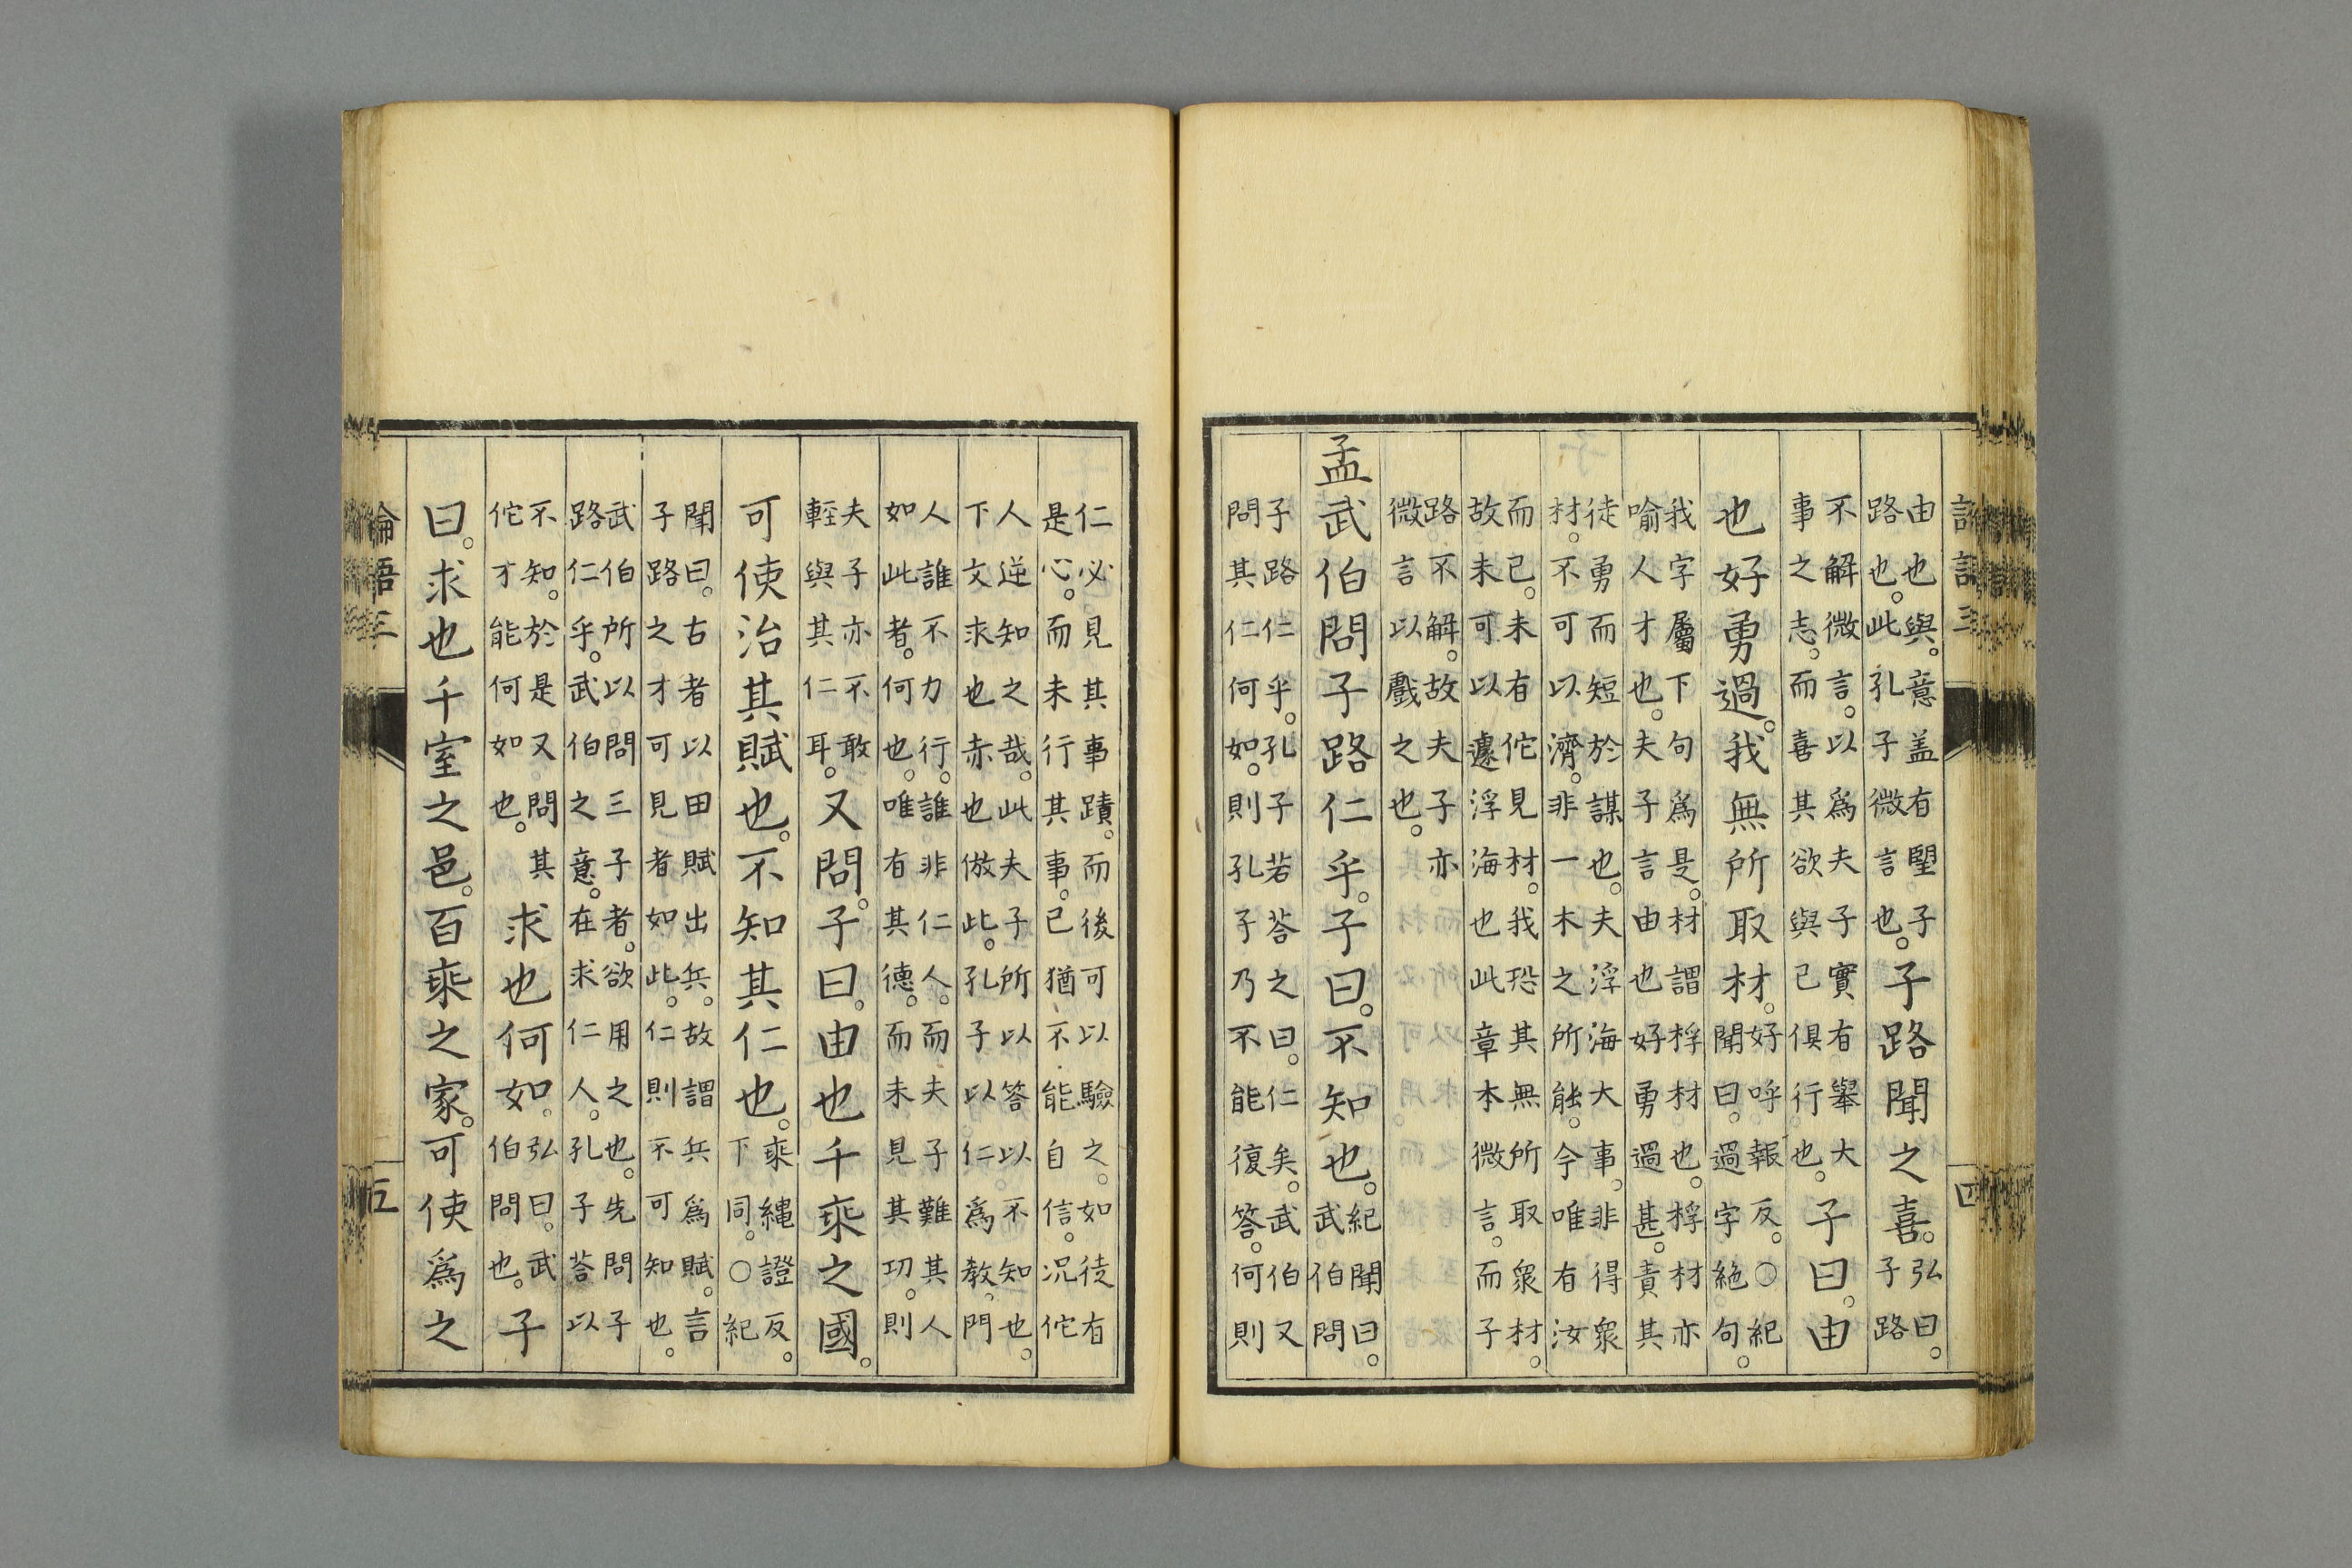 由也與。意盖有朢。子
路也。此孔子微言也。
子路聞之喜。
弘曰。
子路
不解微言。以爲夫子實有舉大
事之志。而喜其欲與已俱行也。
子曰。由
也好勇過。我無所取材。
好呼報反。○紀
聞曰。過字絶句。
我字屬下句爲是。材謂桴材也。桴材亦
喻人才也。夫子言由也好勇過甚。責其
徒勇而短於謀也。夫浮海大事。非得衆
材。不可以濟。非一木之所能。今唯有汝
而已。未有佗見材。我恐其無所取衆材。
故未可以遽浮海也此章本微言。而子
路不解。故夫子亦
微言以戲之也。
孟武伯問子路仁乎。子曰。不知也。
紀聞曰。
武伯問
子路仁乎。孔子若荅之曰。仁矣。武伯又
問其仁何如。則孔子乃不能復答。何則
仁必見其事蹟。而後可以驗之。如徒有
是心。而未行其事。已猶不能自信。况佗
人逆知之哉。此夫子所以答以不知也。
下文求也赤也倣此。孔子以仁爲教。門
人誰不力行。誰非仁人。而夫子難其人
如此者。何也。唯有其德。而未見其功。則
夫子亦不敢
輕與其仁耳。
又問。子曰。由也千乘之國。
可使治其賦也。不知其仁也。
乘繩證反。
下同。○紀
聞曰。古者以田賦出兵。故謂兵爲賦。言
子路之才可見者如此。仁則不可知也。
武伯所以問三子者。欲用之也。先問子
路仁乎。武伯之意。在求仁人。孔子荅以
不知。於是又問其
佗才能何如也。
求也何如。
弘曰。武
伯問也。
子
曰。求也千室之邑。百乘之家。可使爲之
論語三